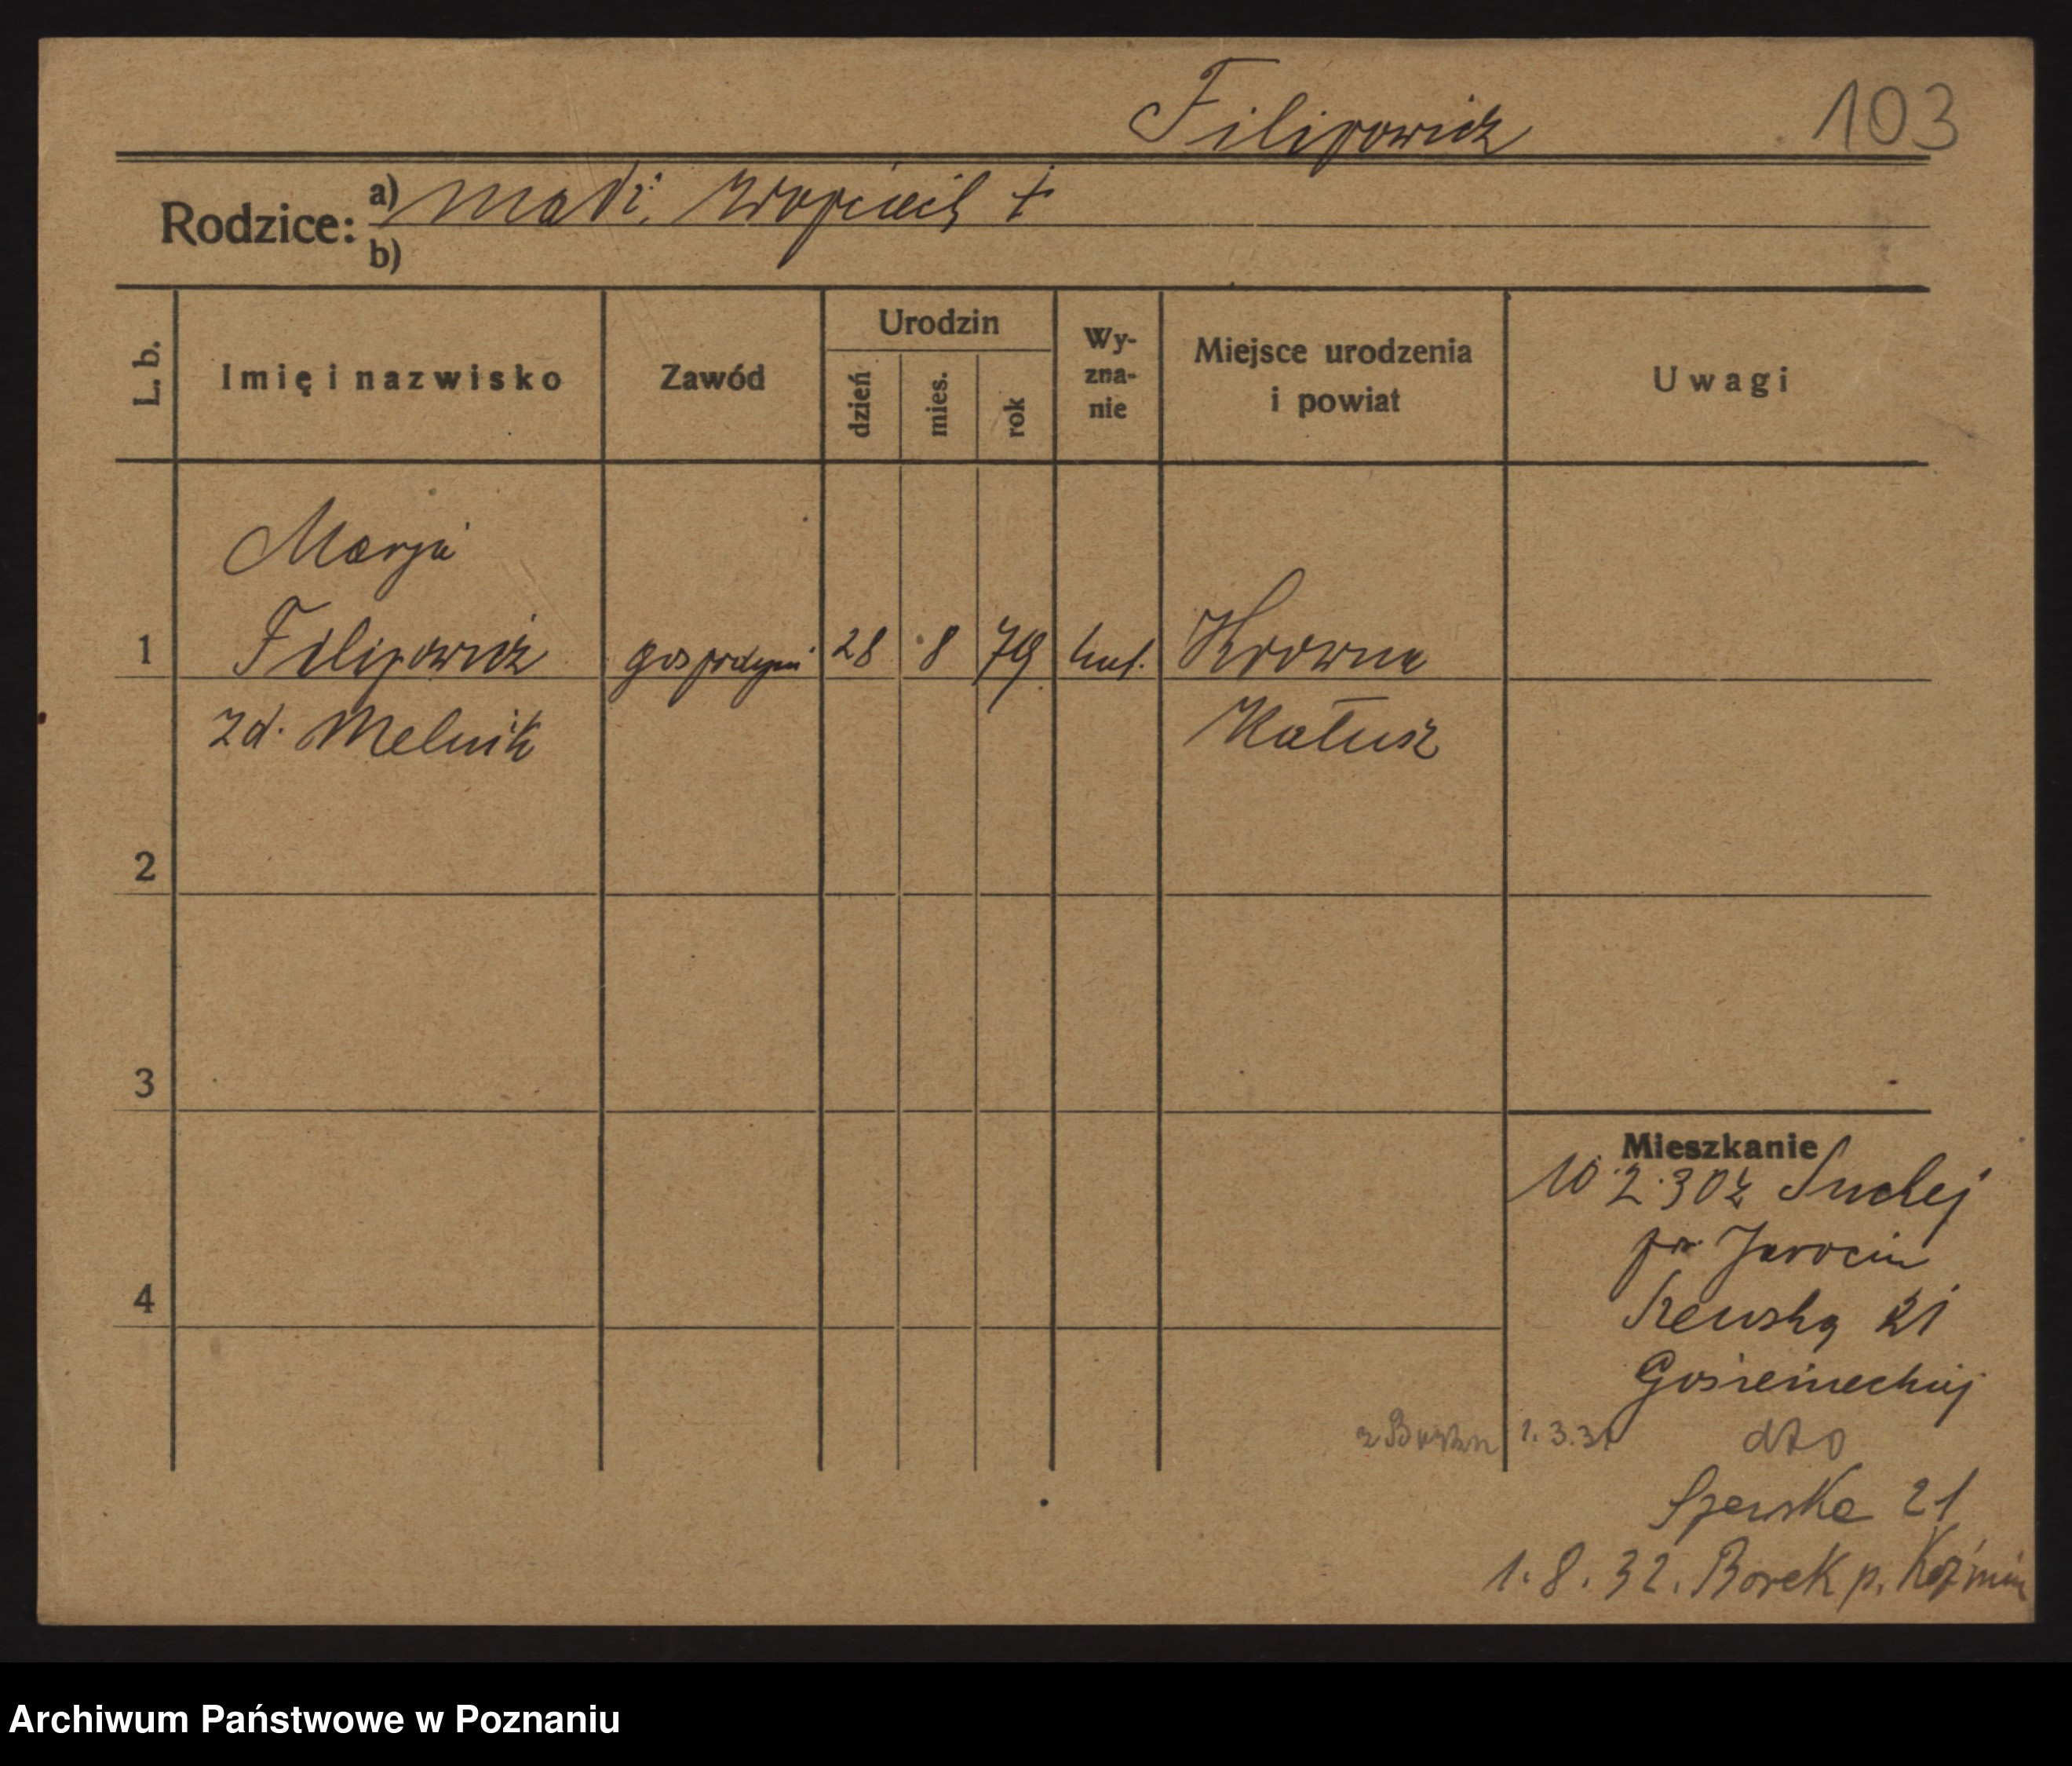 Filipowicz
103
Rodzice:
a) mąż: Wojciech +
b)
L. b.
Imię i nazwisko
Zawód
Urodzin
dzień
mies.
rok
Wy-
zna-
nie
Miejsce urodzenia
i powiat
Uwagi
Marja
1 Filipowicz gospodyni 28 8 79 kat.
zd. Melnik Kałusz
2
3
4
Mieszkanie
10.2.30 z Suchej
pw. Jarocin
Szewska 21
1.3.31 dto
Szewska 21
1.8.32. Borek p. Koźmin
Archiwum Państwowe w Poznaniu